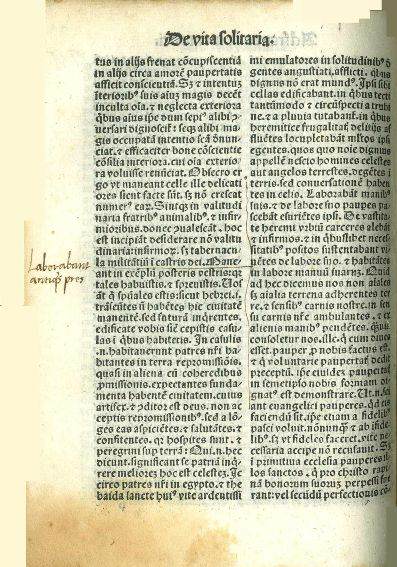 De vita solitaria.
tus in alijs frenat cōcupiscentiā
in alijs circa amorē paupertatis
afficit conscientiā. Sꝫ ⁊ intentus
īterioribꝰ suis aiꝰ magis docet
inculta oīa ⁊ neglecta exteriora
qͥbus aiꝰ ipe dum sepiꝰ alibi ꝟ
versari dignoscit: seqꝫ alibi mag
occupatā intentio seā dēnunc
iat. ⁊ efficacē bone cōscientie
cōsilia interiora. cui oīa exterio
ra voluisse renūciat. Obsecro er
go vt maneant celle ille delicati
ores sicut facte sūt. sꝫ nō crescat
numerꝰ eaꝝ. Sintqꝫ in valitudi
naria fratribꝰ animalibꝰ. ⁊ infir
mioribus. donec ꝯualescāt. ⁊ hoc
est incipiāt desiderare nō valitu
dinaria infirmoꝝ. sꝫ tabernacu
la militātiū ī castris dei. Mane
ant in exēplū posteris vestris: qꝛ
tales habuistis. ⁊ spreuistis. Uos
aūt
censētes ū habētes hic ciuitatē
manentē. sed futurā inqrentes.
edificate vobis sicut cepistis casu
las ī qͥbus habitetis. In casulis
.n. habitauerunt patres nr̄i ha
bitantes in terra repromissiōis.
quasi in aliena cū coheredibus
ꝓmissionis. expectantes funda
menta habentē ciuitatem. cuius
artifex. ⁊ ꝯditor est deus. non ac
ceptis repromissionibꝰ. sed a lō
ges eas aspiciētes ⁊ salutātes. ⁊
confitentes. qꝛ hospites sunt. ⁊
peregrini sup terrā: Qui .n. hec
dicunt. significant se patriā inq
rere meliorē hoc est celestē. Je
circo patres nr̄i in egypto. ⁊ the
baida sancte huiꝰ vite ardentissi
mi emulatores in solitudinibꝰ ō
gentes angustiati. afflicti. qͥbus
dignus nō erat mundꝰ. Ipsi sibi
cellas edificabant. in qͥbus tecti
tantūmodo ⁊ circūspecti a turbi
ne. ⁊ a pluuia tutabant. in qͥbus
heremitice frugalitatꝭ delitijs af
fluētes locupletabāt mltos ipsi
egentes. quos quo noīe dignius
appellē nescio homines celestes
aut angelos terrestres. degētes ī
terris. sed conuersationē haben
tes in celis. Laborabāt manibꝰ
suis. ⁊ de labore sno paupes pa
scebāt esuriētes ipsi. De vastita
te heremi vrbiū carceres alebāt
⁊ infirmos. ⁊ in qͥbuslibet neces
sitatibꝰ positos sustentabāt vi
uētes de labore sno. ⁊ habitātes
in labore manuū suarum. Quid
ad hec dicimus nos non aīales
sꝫ aīalia terrena adherentes ter
re. ⁊ sensibꝰ carnis nostre. in sen
su carnis nr̄e ambulantes. ⁊ ex
alienis manibꝰ pendētes.
consoletur nos. ille. q̄ cum diues
esset. pauper ꝓ nobis factus ē.
⁊ q̄ voluntarie paupertatē dedit
preceptū. ipe eiusdex paupertatꝭ
in semetipso nobis formam dig
natꝰ est demonstrare.
ant euangelici pauperes. qd eis
faciendū sit. ipe etiam a fidelibꝰ
pasci voluit. nonnunqͣ ⁊ ab īfide
libꝰ. sꝫ vt fideles faceret. vite ne
cessaria accipe nō recusauit. Sꝫ
ī primitiua ecclesia pauperes il
los sanctos. q̄ pro christo rapi
nā bonorum suorum perpessi fue
rant: vel secūdū perfectionis cō
Laborabant
antiqi pres